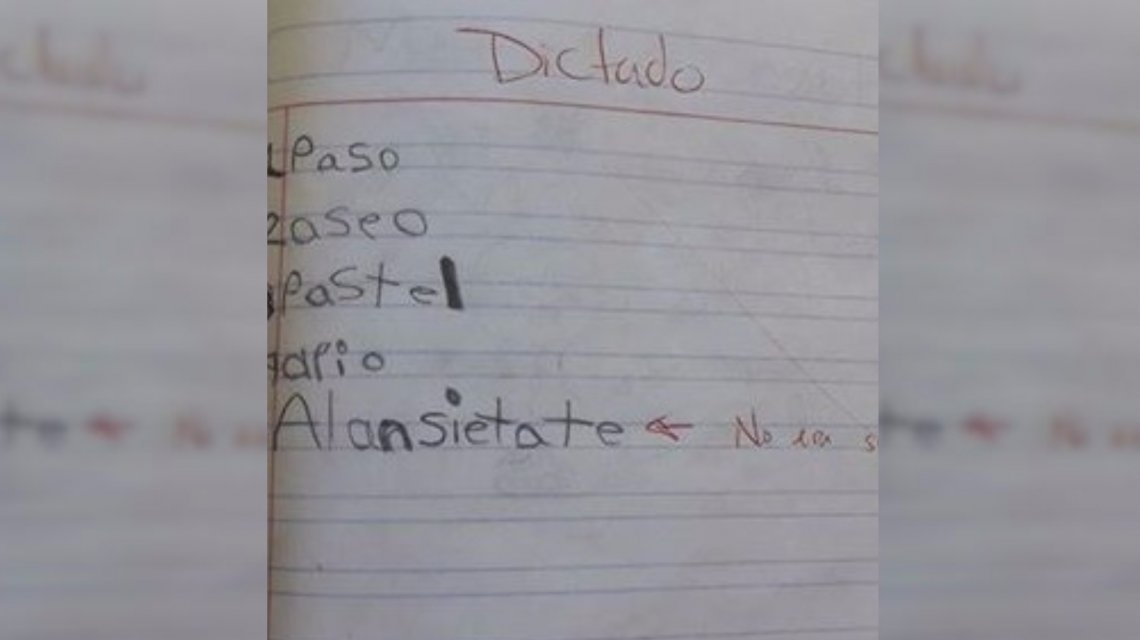 Dictado
1 Paso
2 aseo
Pastel
apio
Alansietate ← No era s